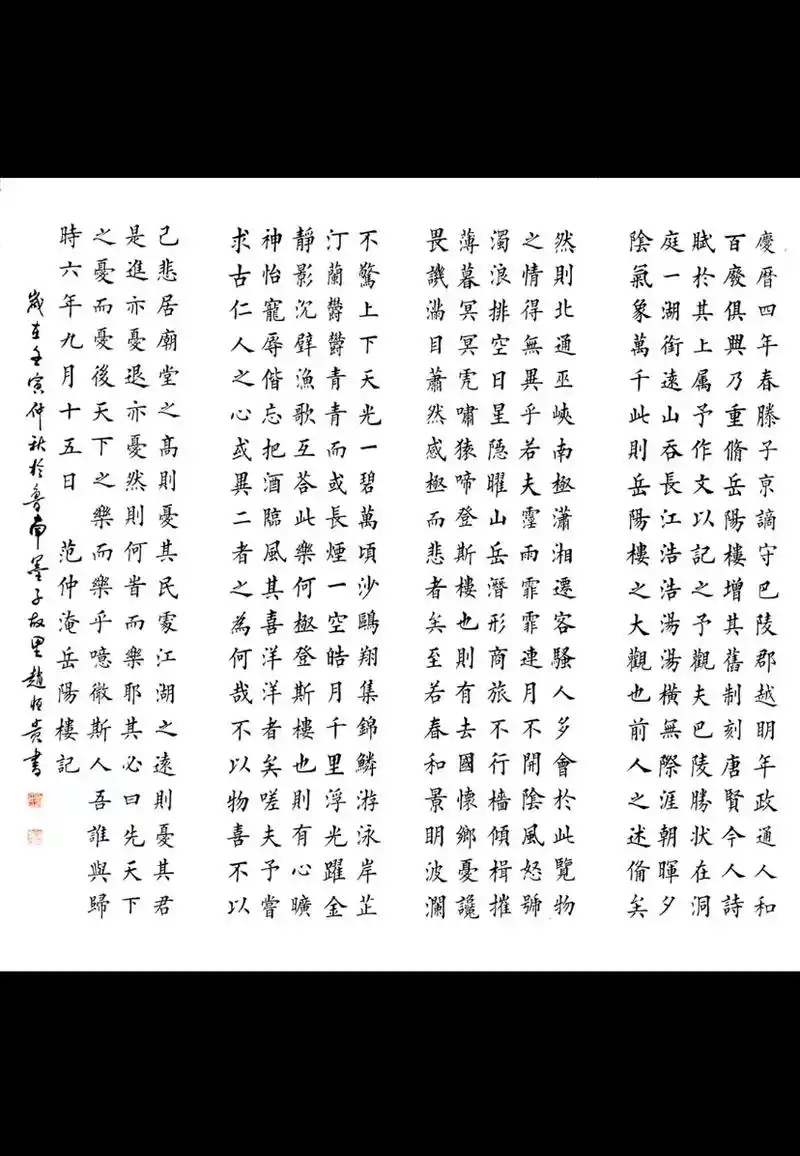 慶曆四年春滕子京謫守巴陵郡越明年政通人和
百廢俱興乃重脩岳陽樓增其舊制刻唐賢今人詩
賦於其上属予作文以記之予觀夫巴陵勝状在洞
庭一湖銜遠山吞長江浩浩湯湯橫無際涯朝暉夕
陰氣象萬千此則岳陽樓之大觀也前人之述俻矣
然則北通巫峽南極瀟湘遷客騷人多會於此覽物
之情得無異乎若夫霪雨霏霏連月不開陰風怒號
濁浪排空日星隱曜山岳潛形商旅不行檣傾楫摧
薄暮冥冥虎嘯猿啼登斯樓也則有去國懷鄉憂讒
畏譏滿目蕭然感極而悲者矣至若春和景明波瀾
不驚上下天光一碧萬頃沙鷗翔集錦鱗游泳岸芷
汀蘭鬱鬱青青而或長煙一空皓月千里浮光躍金
靜影沉璧漁歌互荅此樂何極登斯樓也則有心曠
神怡寵辱偕忘把酒臨風其喜洋洋者矣嗟夫予嘗
求古仁人之心或異二者之為何哉不以物喜不以
己悲居廟堂之高則憂其民處江湖之遠則憂其君
是進亦憂退亦憂然則何旹而樂耶其必曰先天下
之憂而憂後天下之樂而樂乎噫微斯人吾誰與歸
時六年九月十五日 范仲淹岳陽樓記
歲在壬寅仲秋於魯南墨子故里趙恒贵書